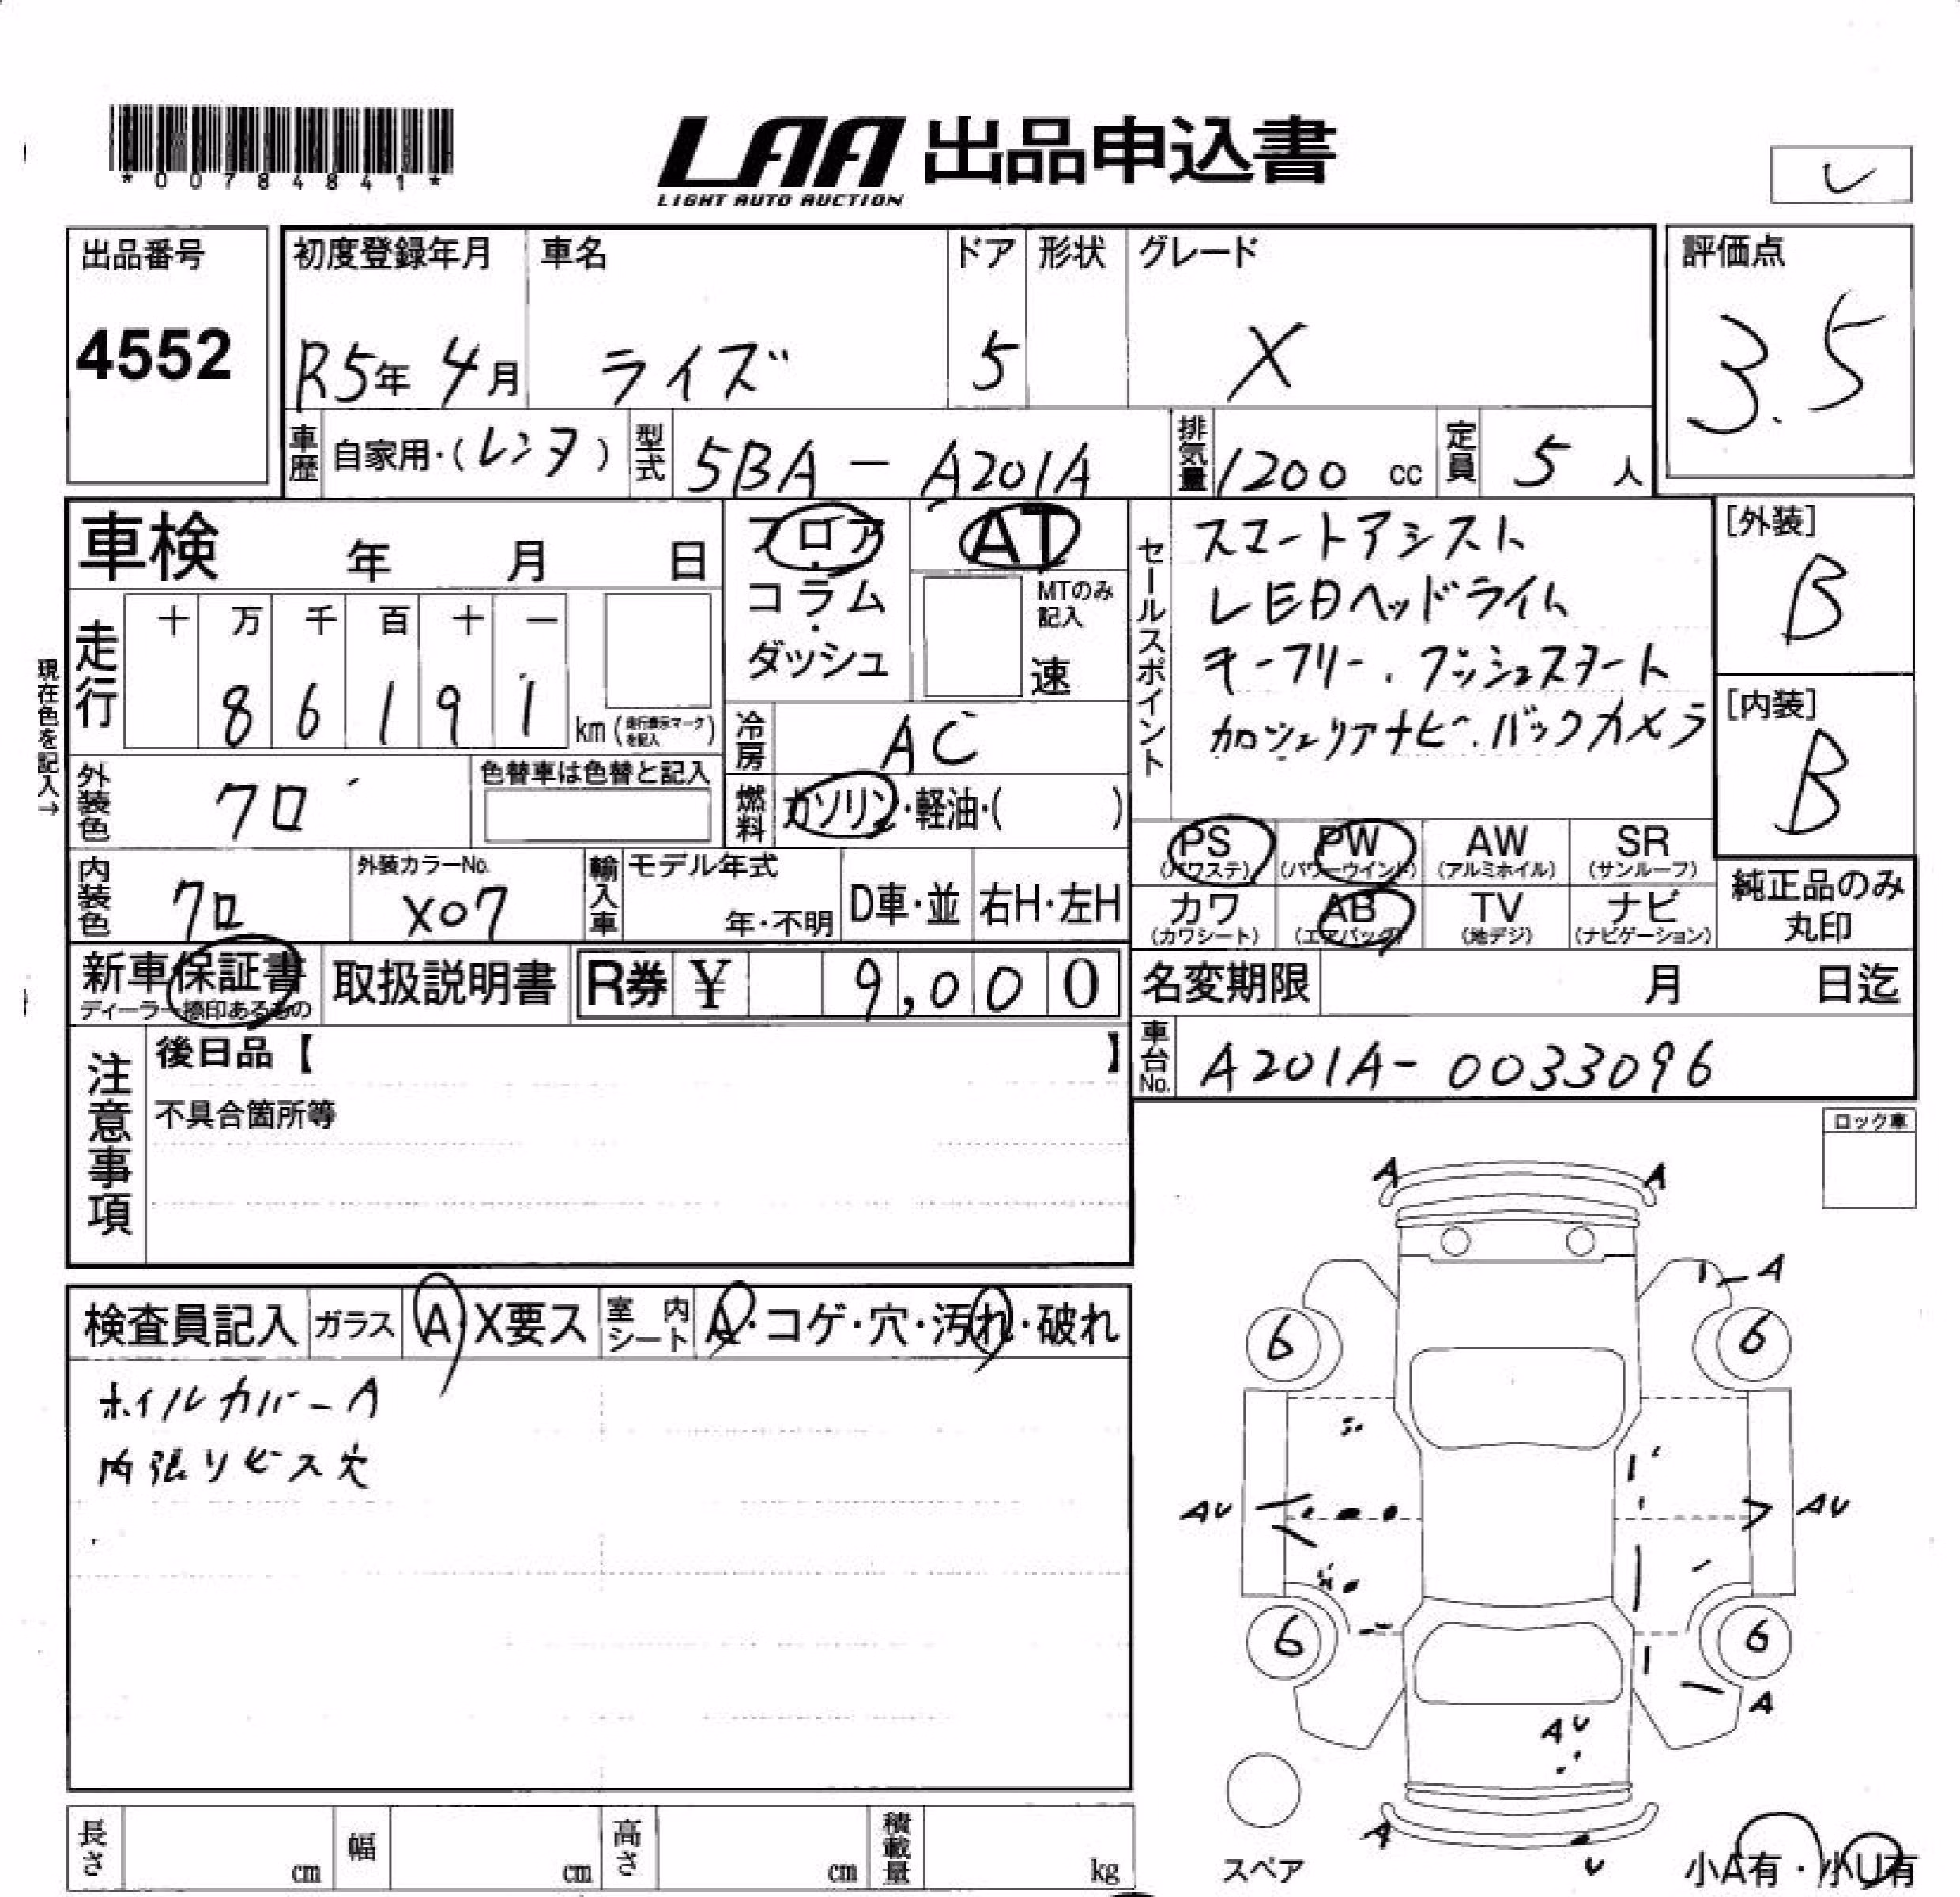 *00784841*
LAA 出品申込書
LIGHT AUTO AUCTION
レ
出品番号
4552
初度登録年月 車名 ドア 形状 グレード
R5年 4月 ライズ 5 X
評価点
3.5
車歴 自家用・(レンタ) 型式 5BA - A201A 排気量 1200 cc 定員 5 人
車検 年 月 日
フロア・コラム・ダッシュ
AT
MTのみ記入
速
セールスポイント
スマートアシスト
LEDヘッドライト
キーフリー.プッシュスタート
カロッツェリアナビ.バックカメラ
[外装]
B
[内装]
B
現在色を記入→
走行 十 万 千 百 十 一
8 6 1 9 1 km (走行表示マークを記入)
冷房 AC
外装色 クロ 色替車は色替と記入
燃料 ガソリン・軽油・( )
内装色 クロ 外装カラーNo. X07 輸入車 モデル年式 年・不明 D車・並 右H・左H
PS (パワステ) PW (パワーウインド) AW (アルミホイル) SR (サンルーフ)
カワ (カワシート) AB (エアバッグ) TV (地デジ) ナビ (ナビゲーション)
純正品のみ丸印
新車保証書 取扱説明書 R券 ¥ 9,000
ディーラー捺印あるもの
名変期限 月 日迄
車台No. A201A-0033096
注意事項
後日品【 】
不具合箇所等
ロック車
検査員記入 ガラス A・X要ス 室内シート A・コゲ・穴・汚れ・破れ
ホイルカバーA
内張リビス穴
A A
A
6 6
AU AU
6 6
A
AU
A U
スペア
小A有・小U有
長さ cm 幅 cm 高さ cm 積載量 kg